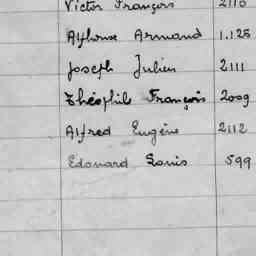 Victor François 2110
Alphonse Armand 1.126
Joseph Julien 2111
Théophile François 2009
Alfred Eugène 2112
Edouard Louis 599